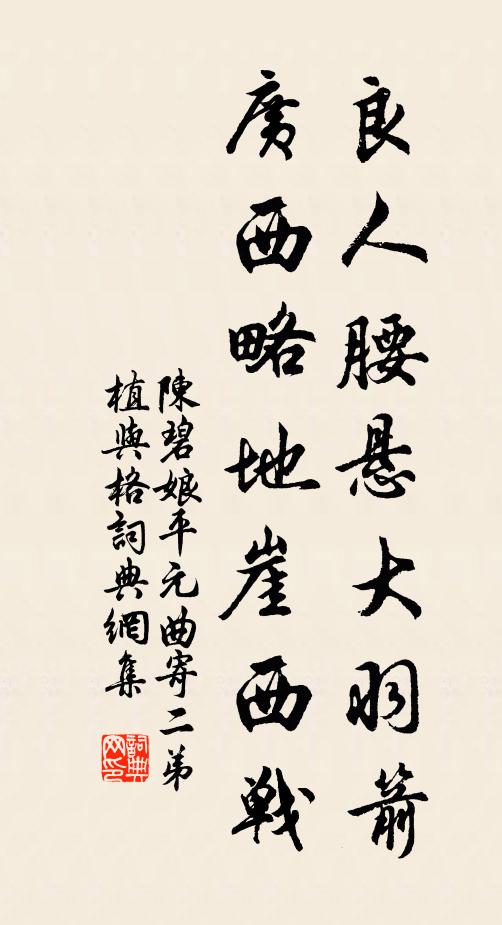 良人腰悬大羽箭
廣西略地崖西戰
陳碧娘平元曲寄二弟
植與格詞典網集
詞典
网印